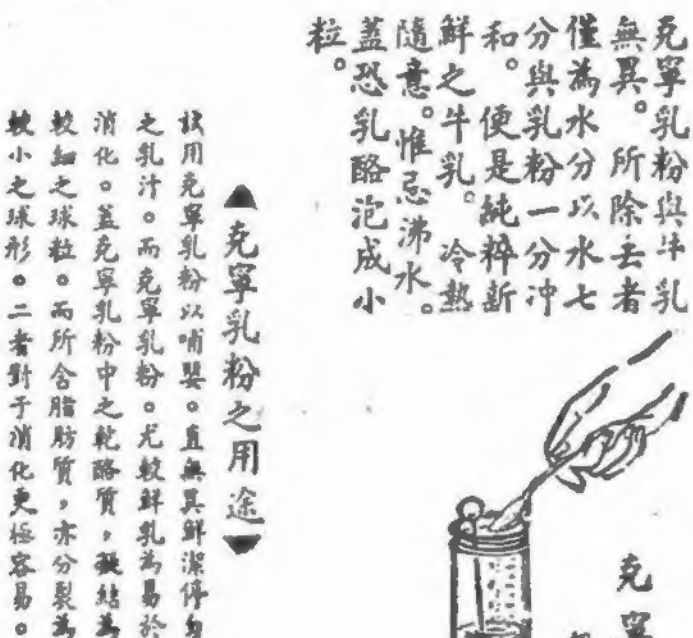 克寧乳粉與牛乳
無異。所除去者
僅為水分以水七
分與乳粉一分沖
和。便是純粹新
鮮之牛乳。冷熱
隨意。惟忌沸水。
蓋恐乳酪泡成小
粒。
克寧
▲克寧乳粉之用途▼
試用克寧乳粉以哺嬰。直無異鮮潔停勻
之乳汁。而克寧乳粉。尤較鮮乳為易於
消化。蓋克寧乳粉中之乾酪質，凝結為
較細之球粒。而所含脂肪質，亦分裂為
較小之球形。二者對于消化更極容易。